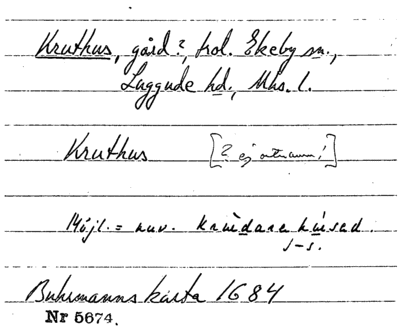 Kruthus, gård?, kol. Ekeby sn.,
Luggude hd., Mhs. l.
Kruthus [? ej ortnamn!]
Möjl. = nuv.
s-s.
Buhrmanns karta 1684
Nr 5674.